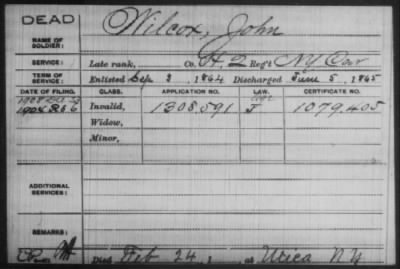 DEAD
Wilcox, John
NAME OF SOLDIER:
SERVICE: Late rank, Co. H, 2 Reg't NY Cav
TERM OF SERVICE: Enlisted Sep 3, 1864 Discharged June 5, 1865
DATE OF FILING. CLASS. APPLICATION NO. LAW. CERTIFICATE NO.
1904 Invalid, 1308,591 J 1079,405
Widow,
Minor,
ADDITIONAL SERVICES:
REMARKS:
Died Feb 24, at Utica NY